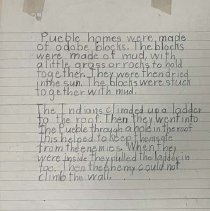 Pueblo homes were made
of adobe blocks. The blocks
were made of mud, with
a little grass or rocks to hold
together. They were then dried
in the sun. The blocks were stuck
together with mud.
The Indians climbed up a ladder
to the roof. Then they went into
the Pueblo through a hole in the roof
This helped to keep them safe
from the enemies. When they
were inside they pulled the ladder in
too. Then the enemy could not
climb the wall.